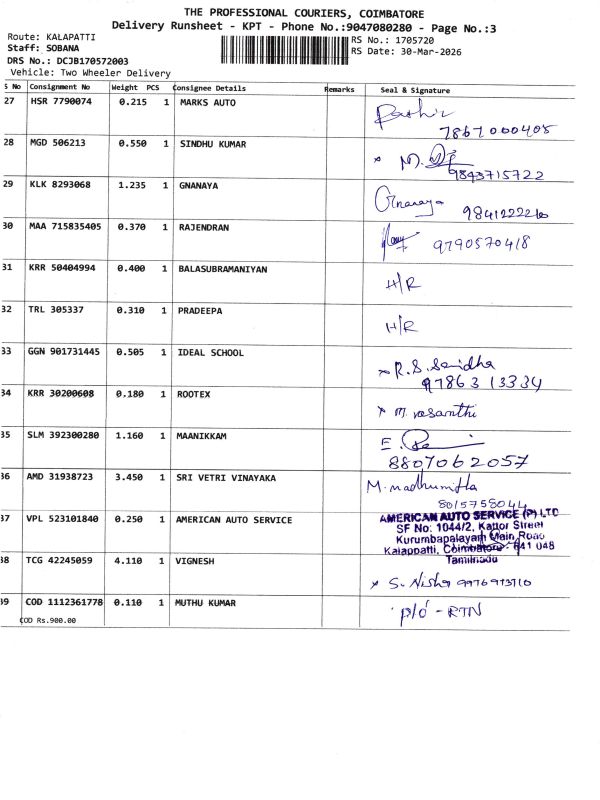 THE PROFESSIONAL COURIERS, COIMBATORE
Delivery Runsheet - KPT - Phone No.:9047080280 - Page No.:3
Route: KALAPATTI
RS No.: 1705720
Staff: SOBANA
RS Date: 30-Mar-2026
DRS No.: DCJB170572003
Vehicle: Two Wheeler Delivery
S No Consignment No Weight PCS Consignee Details Remarks Seal & Signature
27 HSR 7790074 0.215 1 MARKS AUTO
7867000405
28 MGD 506213 0.550 1 SINDHU KUMAR
9843715722
29 KLK 8293068 1.235 1 GNANAYA Gnanaya 9841222210
30 MAA 715835405 0.370 1 RAJENDRAN 9790570418
31 KRR 50404994 0.400 1 BALASUBRAMANIYAN H/R
32 TRL 305337 0.310 1 PRADEEPA H/R
33 GGN 901731445 0.505 1 IDEAL SCHOOL R.S. Sandha
9786313334
34 KRR 30200608 0.180 1 ROOTEX M. vasanthi
35 SLM 392300280 1.160 1 MAANIKKAM
8807062057
36 AMD 31938723 3.450 1 SRI VETRI VINAYAKA M. madhumitha
8015758044
37 VPL 523101840 0.250 1 AMERICAN AUTO SERVICE AMERICAN AUTO SERVICE (P) LTD
SF No: 1044/2, Kattor Street
Kurumbapalayam Main Road
Kalappatti, Coimbatore - 641 048
Tamilnadu
38 TCG 42245059 4.110 1 VIGNESH
S. Nisha 9976973710
39 COD 1112361778 0.110 1 MUTHU KUMAR p/o - RTN
COD Rs.900.00